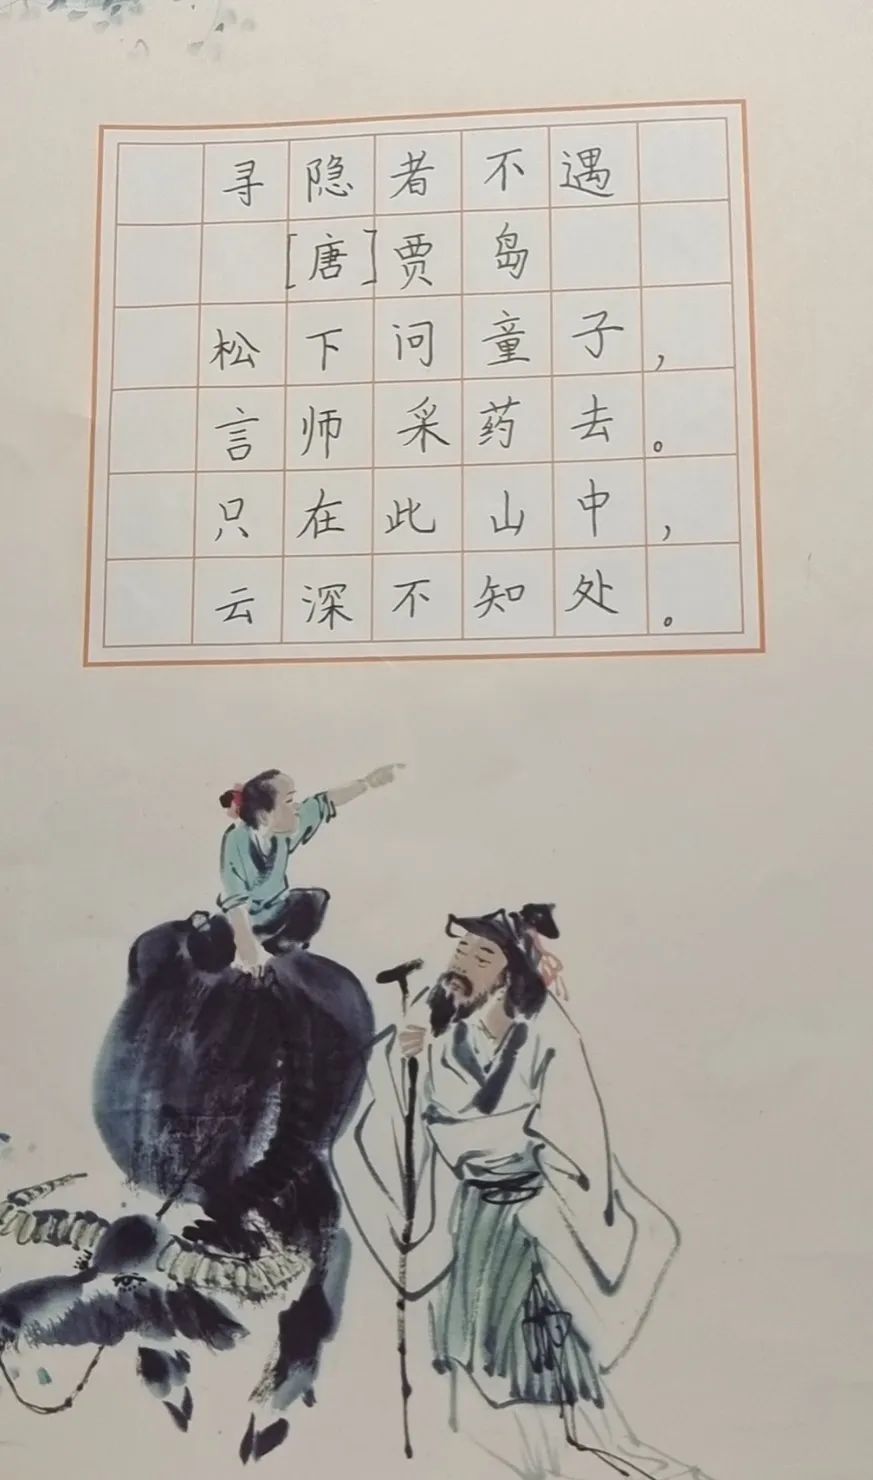 寻隐者不遇
[唐]贾岛
松下问童子，
言师采药去。
只在此山中，
云深不知处。